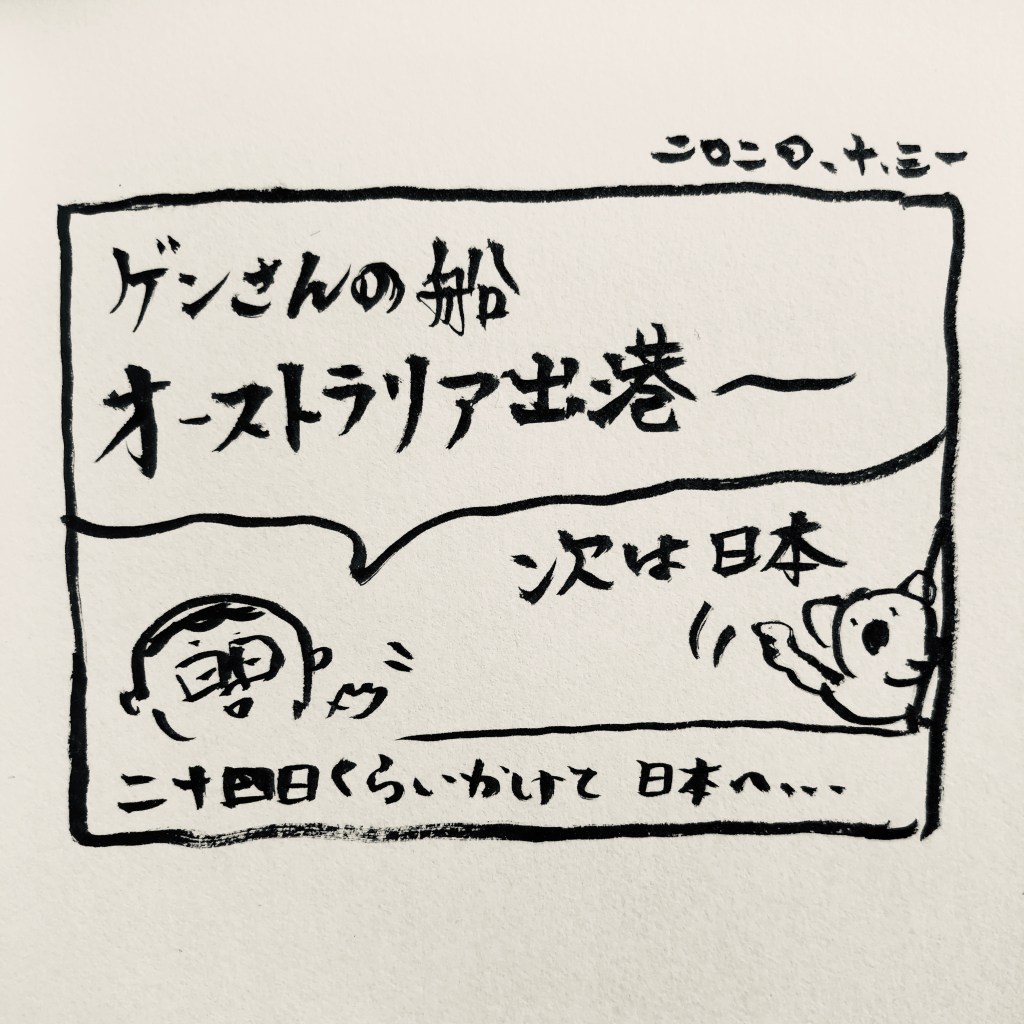 二〇二四、十、三一
ゲンさんの船
オーストラリア出港〜
次は日本
二十四日くらいかけて 日本へ、、、